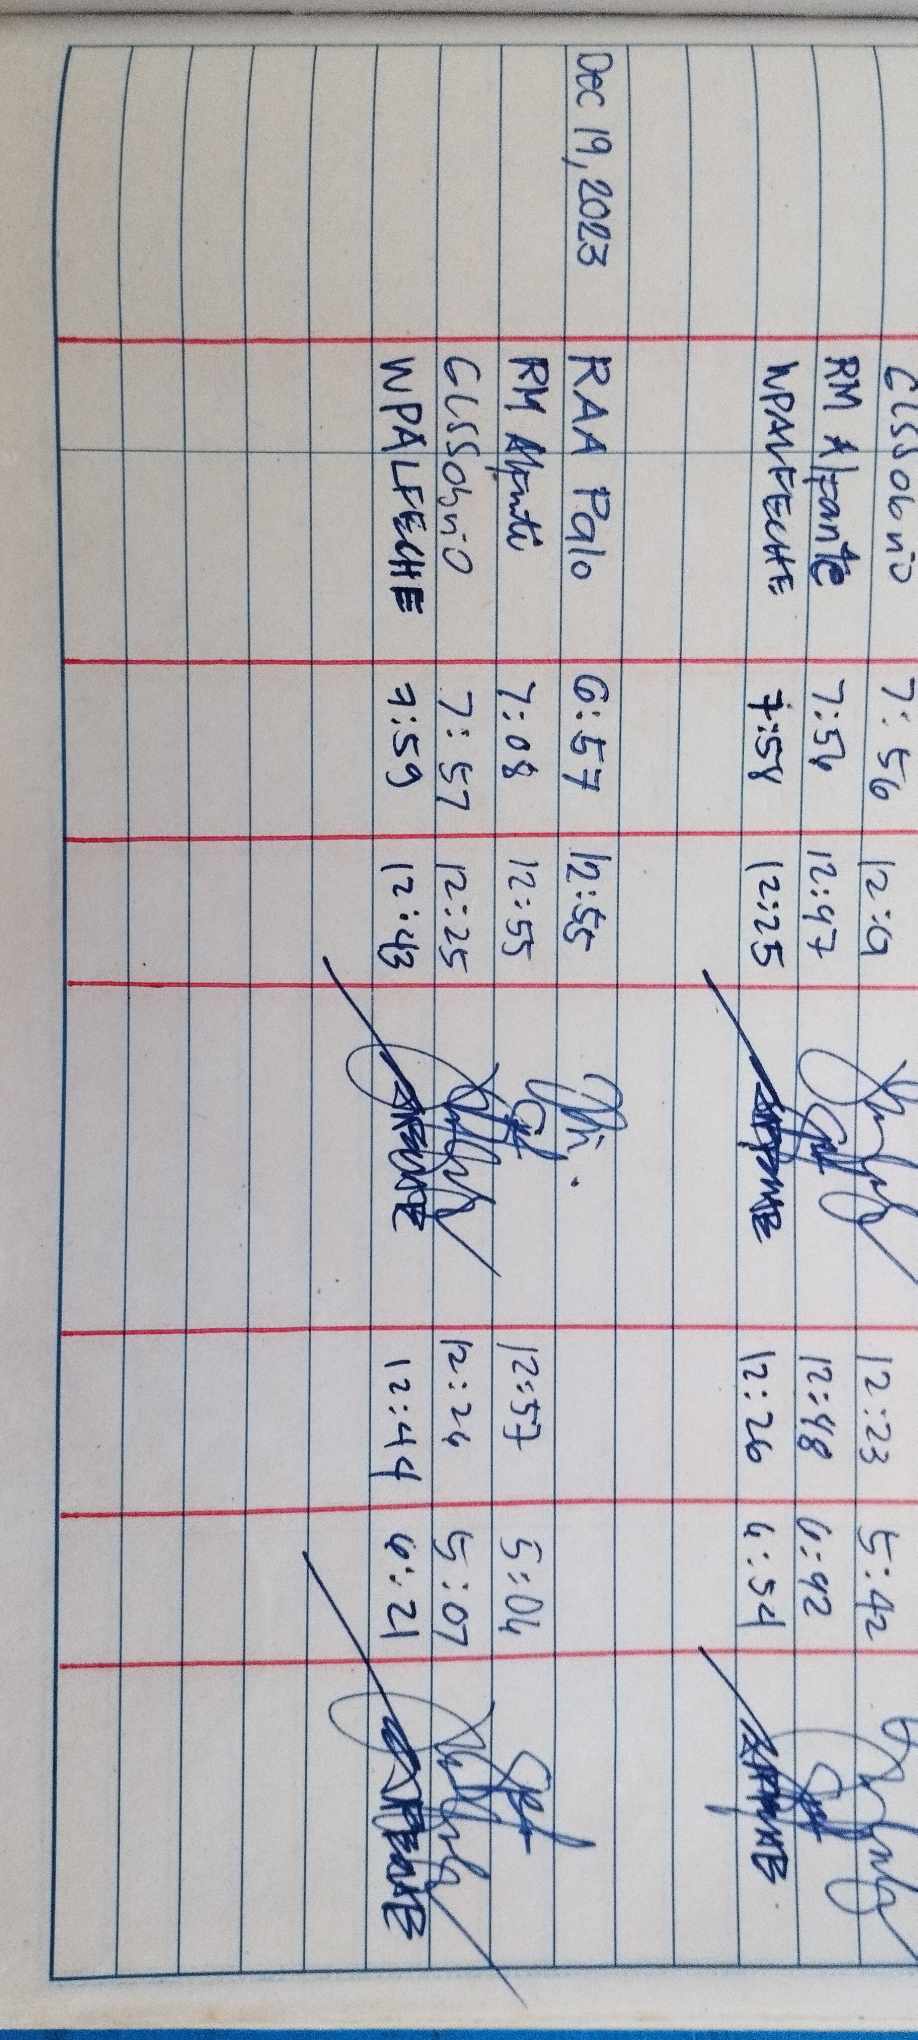 7:56 12:23 5:42
RM Alfante 7:54 12:47 12:48 6:42
WPALFECHE 7:58 12:25 12:26 6:54
Dec 19, 2023 RAA Palo 6:57 12:55
RM 7:08 12:55 12:57 5:04
7:57 12:25 12:26 5:07
WPALFECHE 7:59 12:43 12:44 6:21